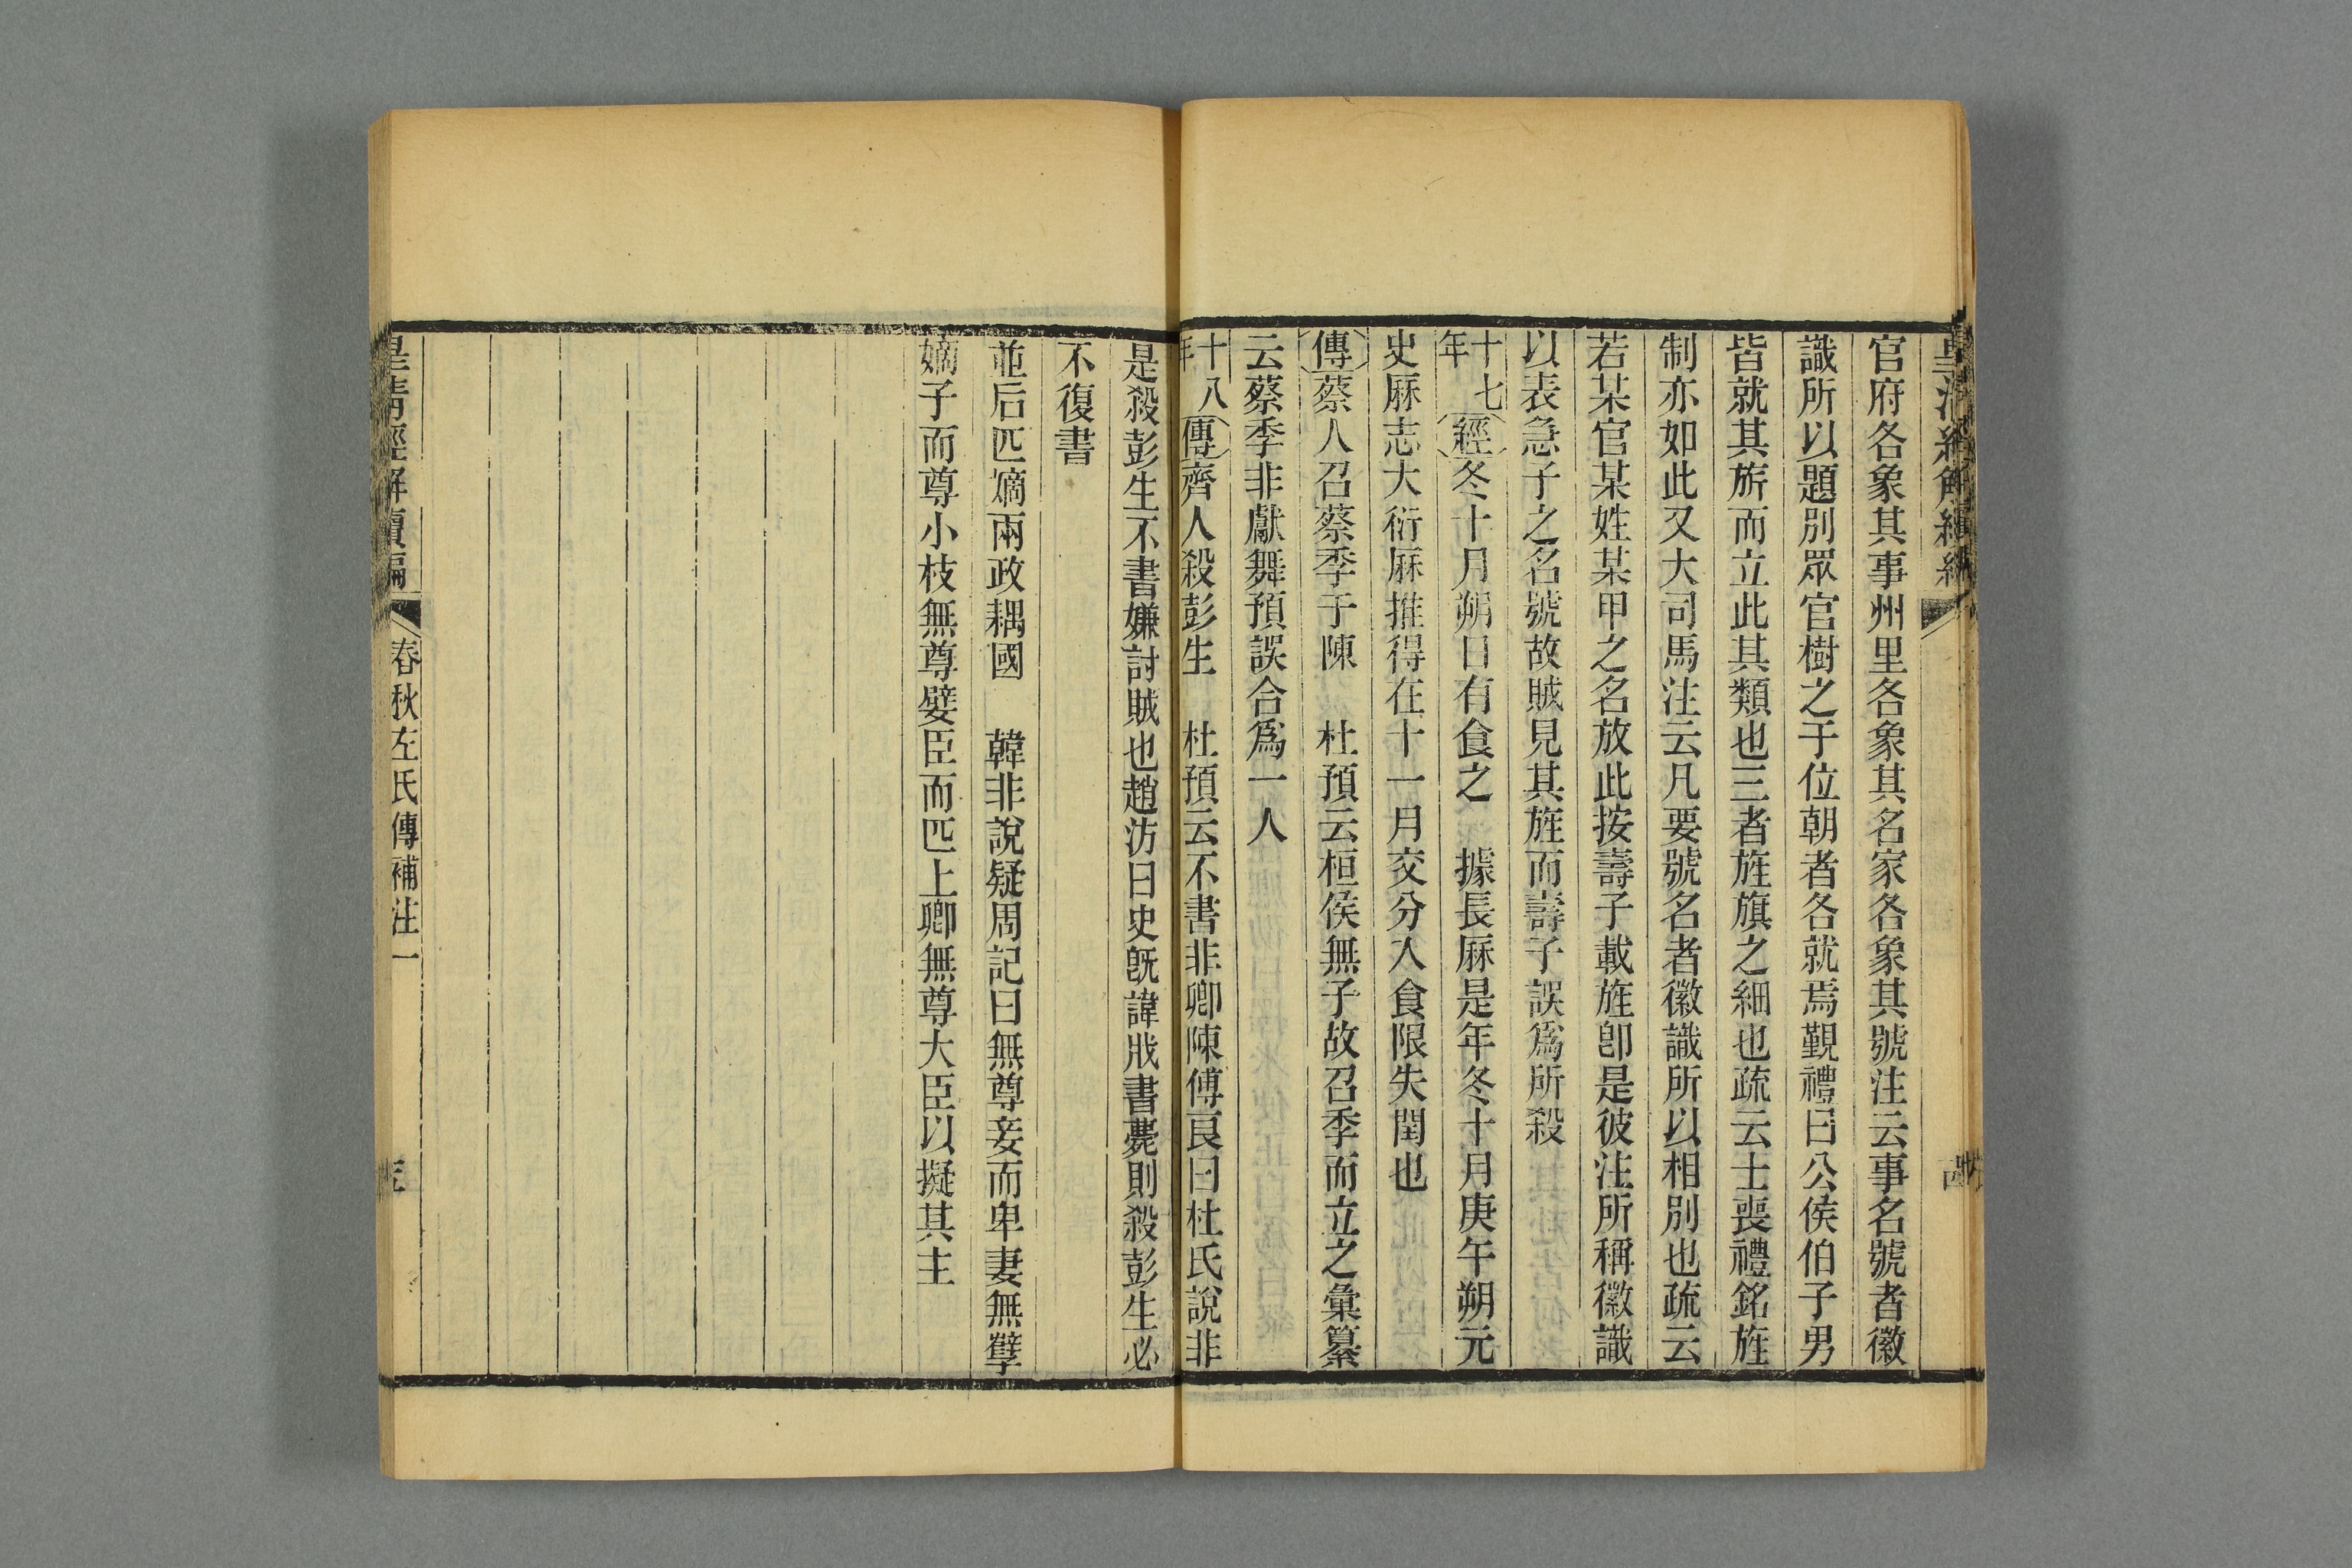 官府各象其事州里各象其名家各象其號注云事名號者徽
識所以題別眾官樹之于位朝者各就焉覲禮曰公侯伯子男
皆就其旂而立此其類也三者旌旗之細也疏云士喪禮銘旌
制亦如此又大司馬注云凡要號名者徽識所以相別也疏云
若某官某姓某甲之名放此按壽子載旌卽是彼注所稱徽識
以表急子之名號故賊見其旌而壽子誤爲所殺
十七年經冬十月朔日有食之　據長厤是年冬十月庚午朔元
史厤志大衍厤推得在十一月交分入食限失閏也
傳蔡人召蔡季于陳　杜預云桓侯無子故召季而立之彙纂
云蔡季非獻舞預誤合爲一人
十八年傳齊人殺彭生　杜預云不書非卿陳傅良曰杜氏說非
是殺彭生不書嫌討賊也趙汸曰史旣諱戕書薨則殺彭生必
不復書
並后匹嫡兩政耦國　韓非說疑周記曰無尊妾而卑妻無孽
嫡子而尊小枝無尊嬖臣而匹上卿無尊大臣以擬其主
皇清經解續編
春秋左氏傳補注一